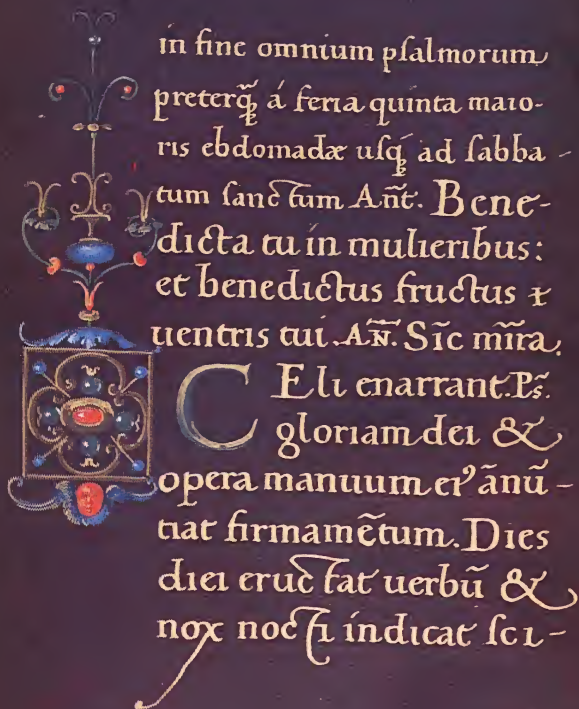 in fine omnium pſalmorum
preterq̃ȝ á feria quinta maio-
ris ebdomadæ uſqȝ́ ad ſabba-
tum ſanctum Añt. Bene-
dicta tu in mulieribus:
et benedictus fructus
uentris tui. AÑ. Sĩc mĩra.
CEli enarrant. Ps̃.
gloriam dei &
opera manuum eiꝰ ãnũ-
tiat firmamẽtum. Dies
diei eructat uerbũ &
nox nocti indicat ſci-